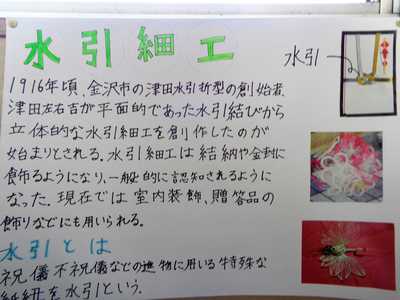 水引細工
水引
1916年頃、金沢市の津田水引折型の創始者
津田左右吉が平面的であった水引結びから
立体的な水引細工を創作したのが
始まりとされる。水引細工は結納や金封に
飾るようになり、一般的に認知されるように
なった。現在では室内装飾、贈答品の
飾りなどにも用いられる。
水引とは
祝儀不祝儀などの進物に用いる特殊な
紙紐を水引という。